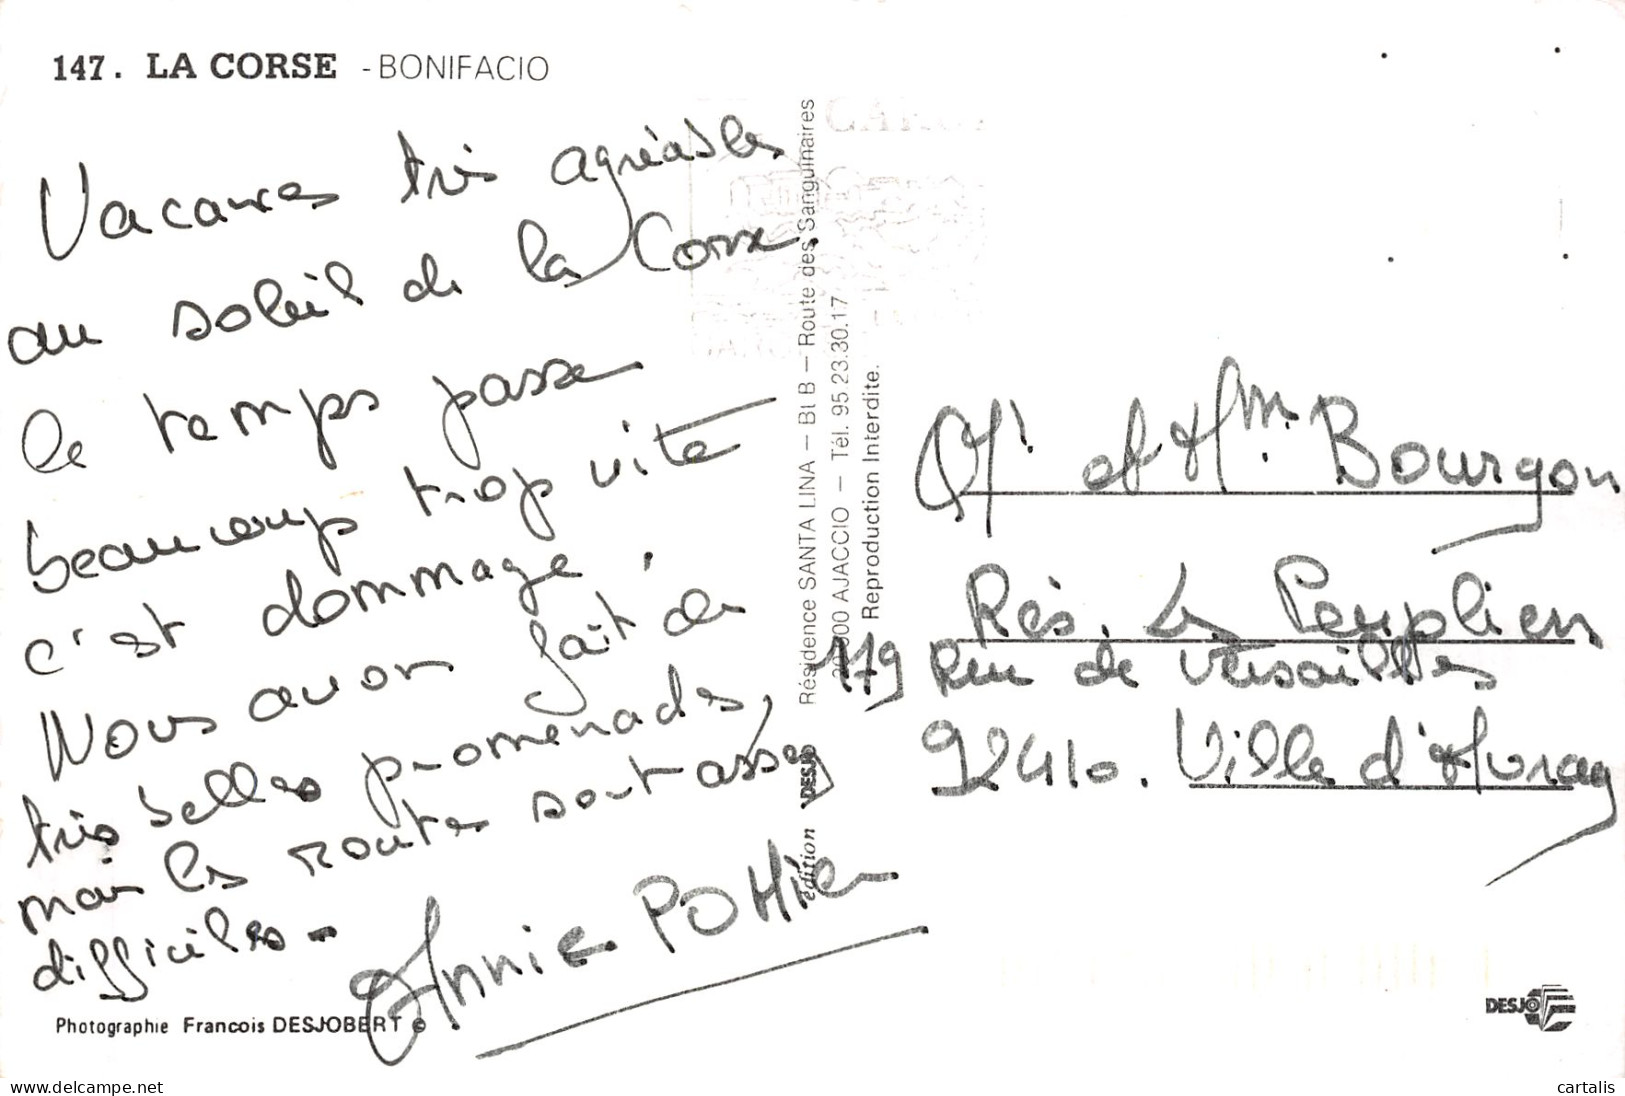 147. LA CORSE - BONIFACIO
Vacances très agréables
au soleil de la Corse.
le temps passe
beaucoup trop vite
c'est dommage.
Nous avon fait de
très belles promenades,
mais les routes sont assez
difficiles -
Annie POTTier
Photographie Francois DESJOBERT ©
édition DESJO
Résidence SANTA LINA — Bt B — Route des Sanguinaires
AJACCIO — Tél. 95.23.30.17
Reproduction Interdite.
Mr et Mme. Bourgon
Rés. Le Peuplier
179 Rue de Versailles
92410. Ville d'Avray
DESJO
www.delcampe.net
cartalis